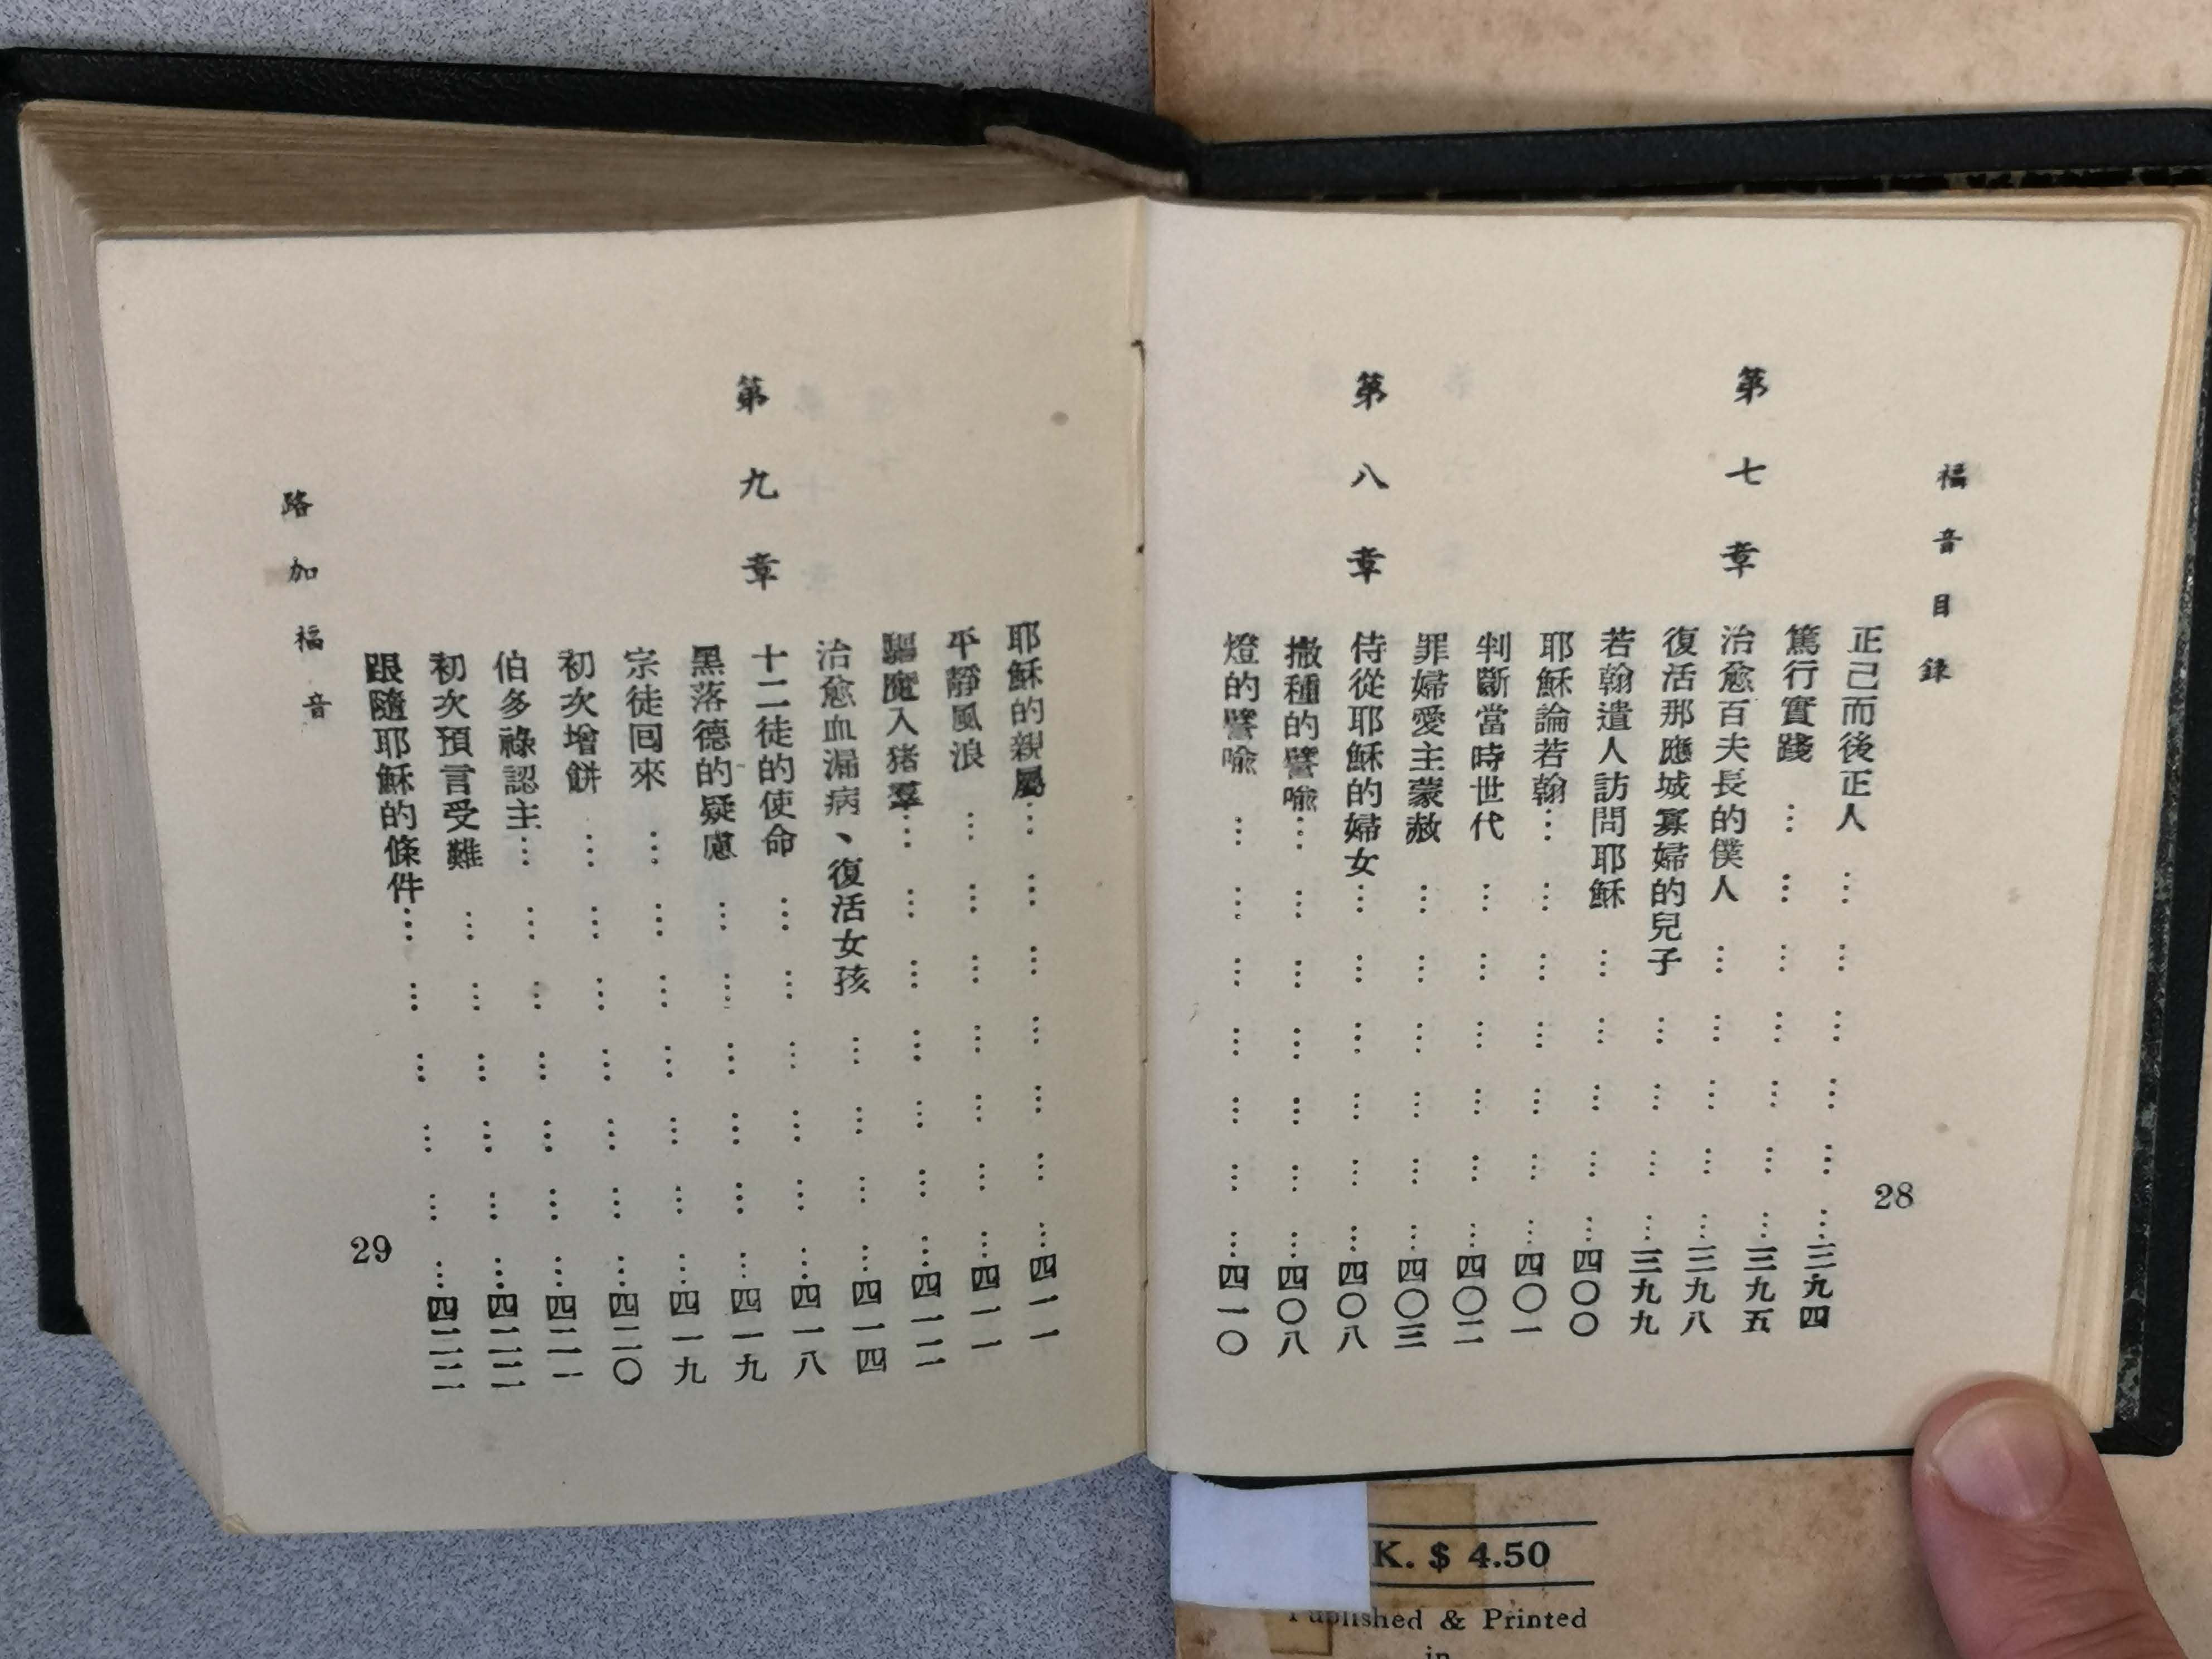 福音目錄
28
正己而後正人………………三九四
篤行實踐………………三九五
第七章
治愈百夫長的僕人………………三九八
復活那應城寡婦的兒子………………三九九
若翰遣人訪問耶穌………………四〇〇
耶穌論若翰………………四〇一
判斷當時世代………………四〇二
罪婦愛主蒙赦………………四〇三
第八章
侍從耶穌的婦女………………四〇八
撒種的譬喻………………四〇八
燈的譬喻………………四一〇
耶穌的親屬………………四一一
平靜風浪………………四一一
驅魔入猪羣………………四一二
治愈血漏病、復活女孩………………四一四
第九章
十二徒的使命………………四一八
黑落德的疑慮………………四一九
宗徒回來………………四一九
初次增餅………………四二〇
伯多祿認主………………四二一
初次預言受難………………四二二
跟隨耶穌的條件………………四二二
路加福音
29
K. $ 4.50
Published & Printed
in